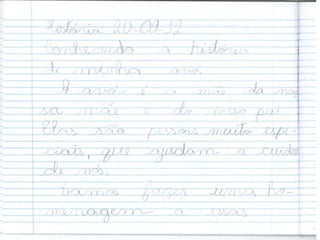 História 20-09-12
Conhecendo a história
de minha avó.
A avó é a mãe da nos
sa mãe e do nosso pai.
Elas são pessoas muito espe-
ciais, que ajudam a cuidar
de nós.
Vamos fazer uma ho-
menagem a essas